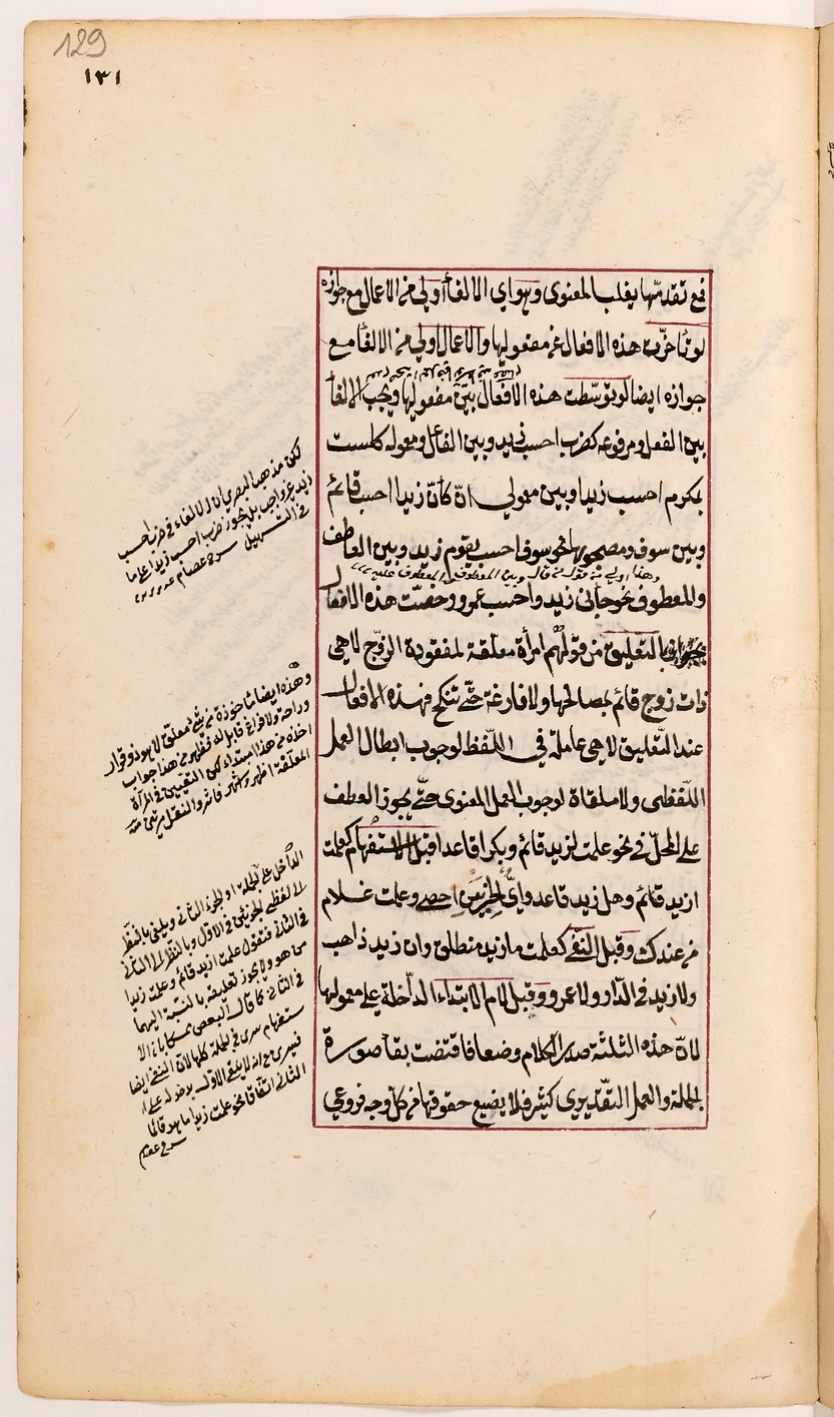 129
١٣١
فمع تقدمها يغلب المعنوى وهو اى الالغاء اولى من الاعمال مع جوازه
لو تأخرت هذه الافعال عن مفعوليها والاعمال اولى من الالغاء مع
جوازه ايضا لو توسّطت هذه الافعال بين مفعوليها ويجب الالغاء
بين الفعل ومرفوعه كضرب احسب زيد وبين الفاعل ومعموله كلست
بمكرم احسب زيدا وبين معمولى انّ كانّ زيدا احسب قائم
وبين سوف ومصحوبها نحو سوف احسب يقوم زيد وبين العاطف
وهذا اولى من قول من قال وبين المعطوف والمعطوف عليه
والمعطوف نحو جائنى زيد واحسب عمرو وخصّت هذه الافعال
بالتعليق من قولهم امرأة معلقة لمفقودة الزوج لا هى
ذات زوج قائم بمصالحها ولا فارغة حتّى تنكح فهذه الافعال
عند التّعليق لا هى عاملة فى اللّفظ لوجوب ابطال العمل
اللّفظى ولا ملقاة لوجوب العمل المعنوى حتّى يجوز العطف
على المحلّ فى نحو علمت لزيد قائم وبكرا قاعدا قبل الاستفهام كعلمت
ازيد قائم وهل زيد قاعد واىّ الحزبين احصى وعلمت غلام
من عندك وقبل النّفى كعلمت ما زيد منطلق وان زيد ذاهب
ولا زيد فى الدّار ولا عمرو وقبل لام الابتداء الدّاخلة على معمولها
لانّ هذه الثلثة صدر الكلام وضعا فاقتضت بقا صورة
الجملة والعمل التّقديرى كثير فلا يضيع حقوقها من كل وجه فروعى
لكن مذهب البصرى ان الالغاء فى ضرب احسب
زيد غير واجب بل يجوز ضرب احسب زيدا على ما
فى التسهيل شرح عصام
وهذه ايضا مأخوذة من شئ معلق لا هو ذو قرار
وراحة ولا فراغ قابل له فظهر من هذا جواب
المعلّقة اظهر واشهر
الدّاخل على الجملة او الجزء الثانى ويلغى بالنظر
فى الثانى فتقول علمت ازيد قائم وعلمت زيدا
من هو ولا يجوز تعليقه بالنسبة اليهما
فى الثانى كما قال البعض
الثانى اتّفاقا نحو علمت زيدا ما هو قائما
شرح عصام